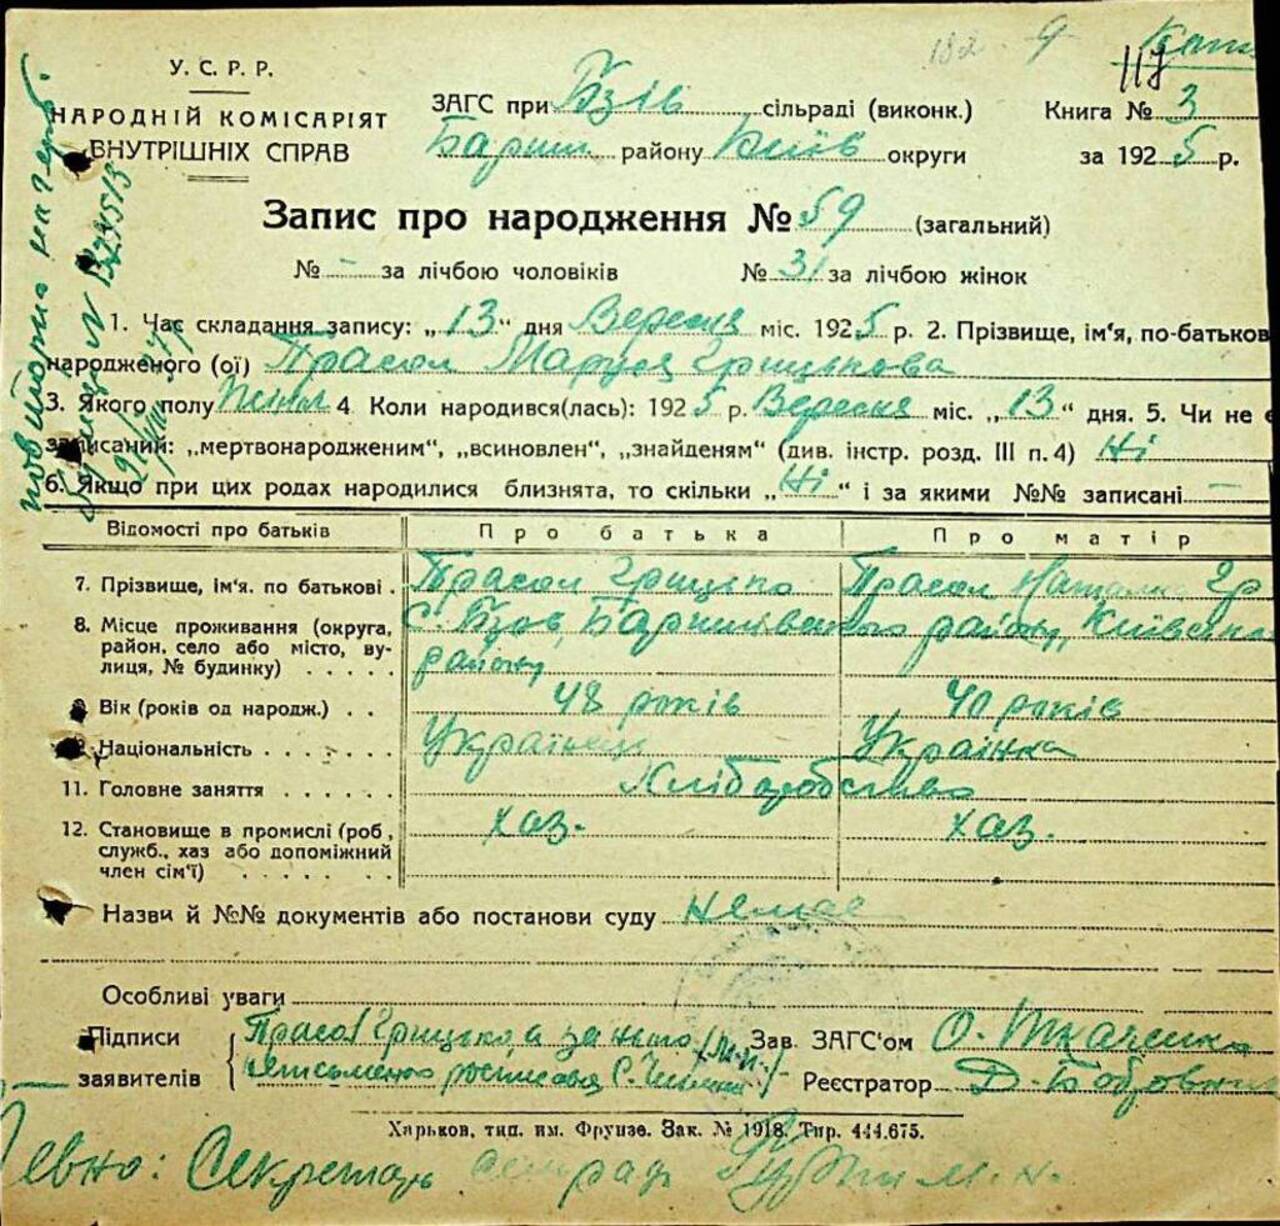 182 9
117
У. С. Р. Р.
НАРОДНІЙ КОМІСАРІЯТ
ВНУТРІШНІХ СПРАВ
ЗАГС при Бзів сільраді (виконк.) Книга № 3
Бариш району Київ округи за 1925 р.
Запис про народження № 59 (загальний)
№ – за лічбою чоловіків № 31 за лічбою жінок
1. Час складання запису: „13“ дня Вересня міс. 1925 р. 2. Прізвище, ім'я, по-батьков
народженого (ої) Прасол Маруся Грицькова
3. Якого полу Жіноч 4. Коли народився(лась): 1925 р. Вересня міс. „13“ дня. 5. Чи не є
записаний: „мертвонародженим“, „всиновлен“, „знайденям“ (див. інстр. розд. III п. 4) Ні
6. Якщо при цих родах народилися близнята, то скільки „Ні“ і за якими №№ записані –
Відомості про батьків Про батька Про матір
7. Прізвище, ім'я. по батькові . Прасол Грицько Прасол Наталка Гр
8. Місце проживання (округа, С. Бзов, Баришівського району, Київська
район, село або місто, ву- району
лиця, № будинку) . . . . .
9 Вік (років од народж.) . . 48 років 40 років
Національність . . . . . . . Українець Українка
11. Головне заняття . . . . . . Хліборобство
12. Становище в промислі (роб, хаз. хаз.
служб., хаз або допоміжний
член сім'ї) . . . . . .
Назви й №№ документів або постанови суду Немає
Особливі уваги
Підписи Прасол Грицько, а за його Зав. ЗАГС'ом О. Ткаченко
заявителів неписьменого росписався С. Реєстратор Д. Бобовни
Харьков, тип. им. Фрунзе. Зак. № 1918. Тир. 444.675.
евно: Секретар сільради
повторна
N 323513